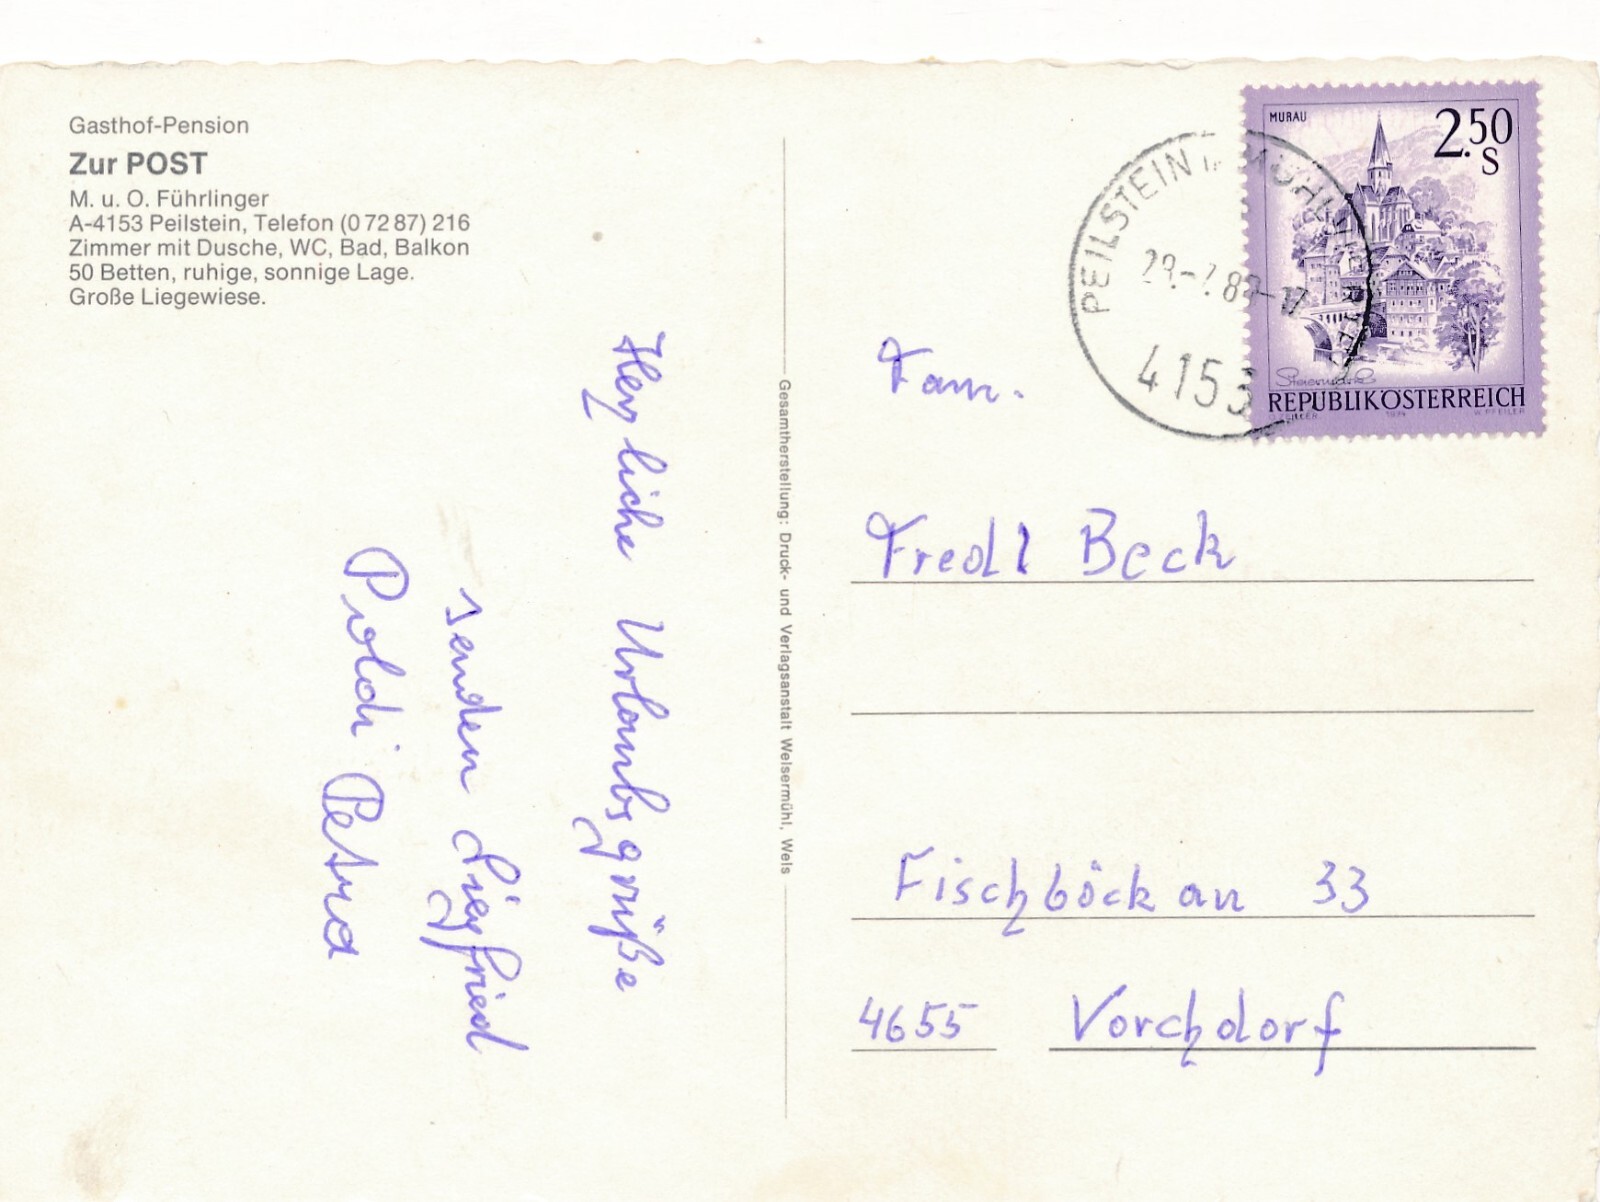 Gasthof-Pension
Zur POST
M. u. O. Führlinger
A-4153 Peilstein, Telefon (0 72 87) 216
Zimmer mit Dusche, WC, Bad, Balkon
50 Betten, ruhige, sonnige Lage.
Große Liegewiese.
Herzliche Urlaubsgrüße
senden Siegfried
Poldi Petra
Gesamtherstellung: Druck- und Verlagsanstalt Welsermühl, Wels
PEILSTEIN
4153
MURAU
2.50
S
Steiermark
REPUBLIK ÖSTERREICH
W. PFEILER
Fam.
Fredl Beck
Fischböckau 33
4655 Vorchdorf